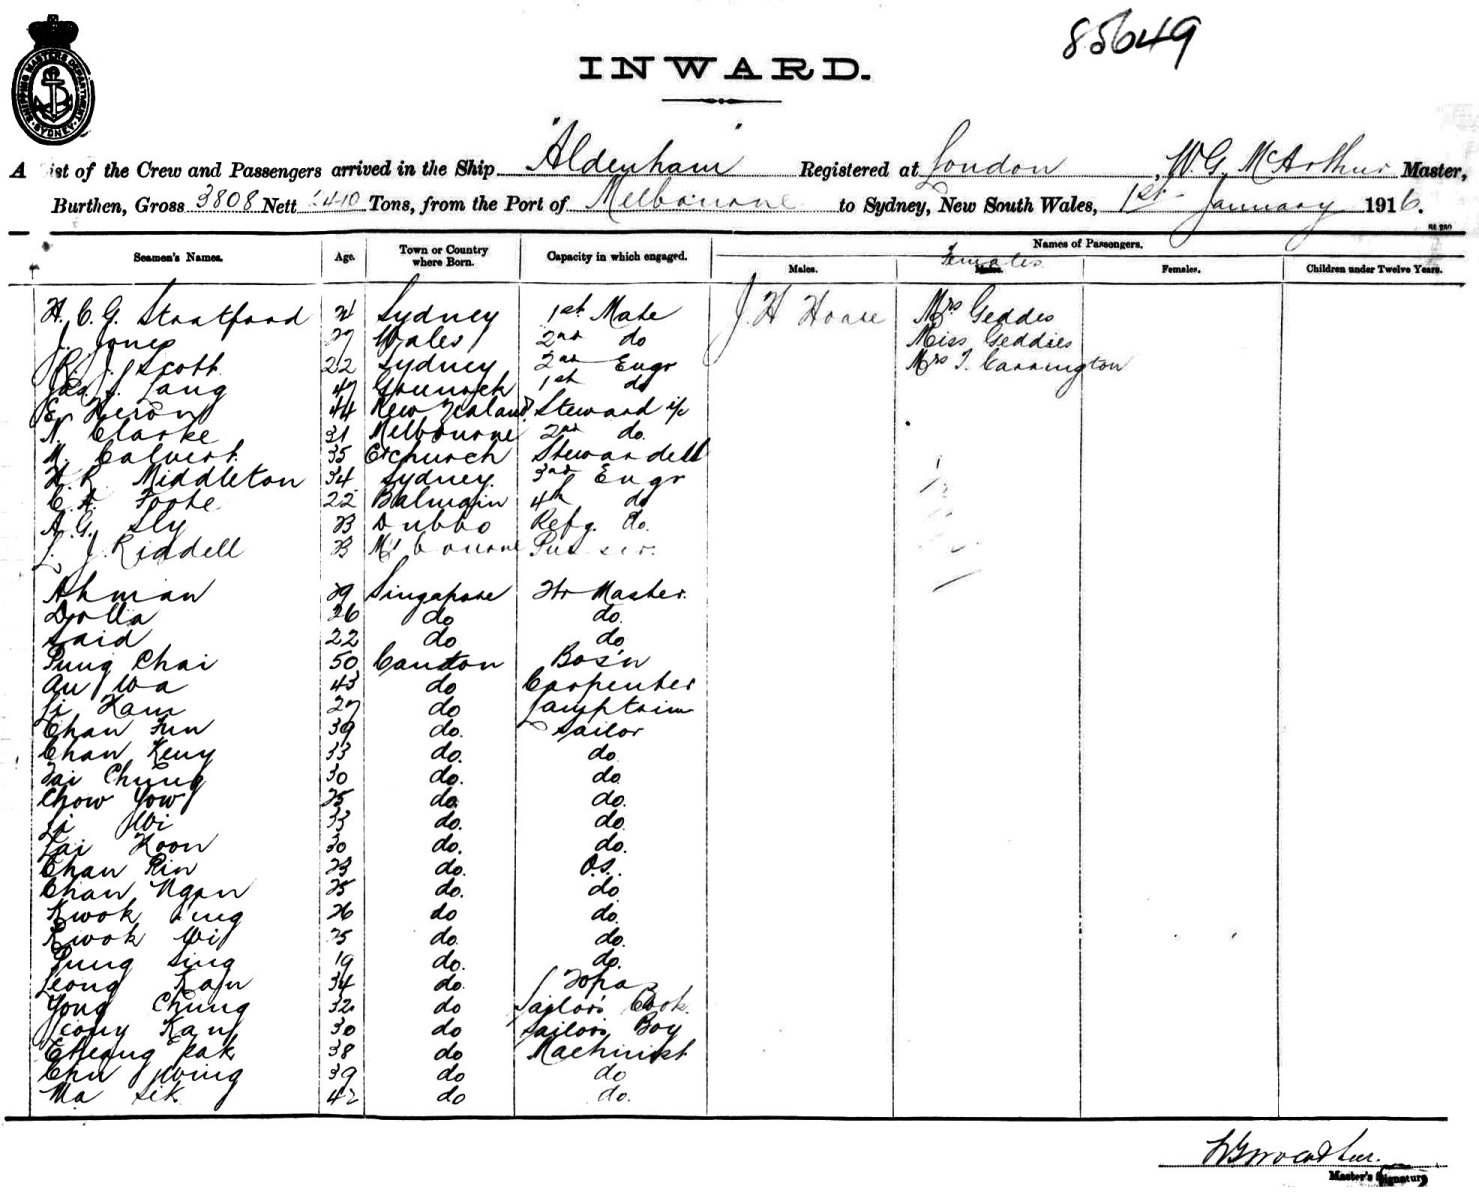 85649
INWARD.
SHIPPING MASTERS DEPARTMENT SYDNEY
A ist of the Crew and Passengers arrived in the Ship "Aldenham" Registered at London, W. G. McArthur Master,
Burthen, Gross 3808 Nett 2410 Tons, from the Port of Melbourne to Sydney, New South Wales, 1st January 1916.
Seamen's Names. Age. Town or Country where Born. Capacity in which engaged. Names of Passengers.
Males. Females Males. Females. Children under Twelve Years.
H. C. G. Stratford Sydney 1st Mate J. H Hoare Mrs Geddes
J. Jones 27 Wales 2nd do Miss Geddies
R. J. Scott 22 Sydney 2nd Engr Mrs T. Carrington
Jas. Lang 47 Greenock 1st do
E. Heron 44 New Zealand Steward i/c
N. Clarke 31 Melbourne 2nd do.
M. Calvert 35 Ch church Stewardess
H. R. Middleton 34 Sydney. 3rd Engr
C. A. Foote 22 Balmain 4th do
A. G. Sly 23 Dubbo Refg. do.
L. J. Riddell 23 Melbourne Purser.
Ahman 29 Singapore Master.
Dolla 26 do do.
Said 22 do do
Pung Chai 50 Canton Bos'n
Au Wa 43 do Carpenter
Li Kam 27 do Lamptrim
Chan Fun 39 do. Sailor
Chan Keny 33 do. do.
Tai Chung 30 do. do.
Chow Yow 25 do do.
Li Wi 33 do. do.
Lai Koon 30 do. do.
Chan Rin 23 do. O.S.
Chan Ngan 25 do. do
Kwok 26 do do.
Kwok Wi 25 do do.
Pung Sing 19 do. do.
Leong Kan 34 do. Topa
Yong Chung 32 do Sailor's Cook.
Kan 30 do Sailors Boy
Cheang Pak 38 do Machinist
Chu Wing 39 do do
Ma Sik 42 do do.
W G McArthur.
Master's Signature